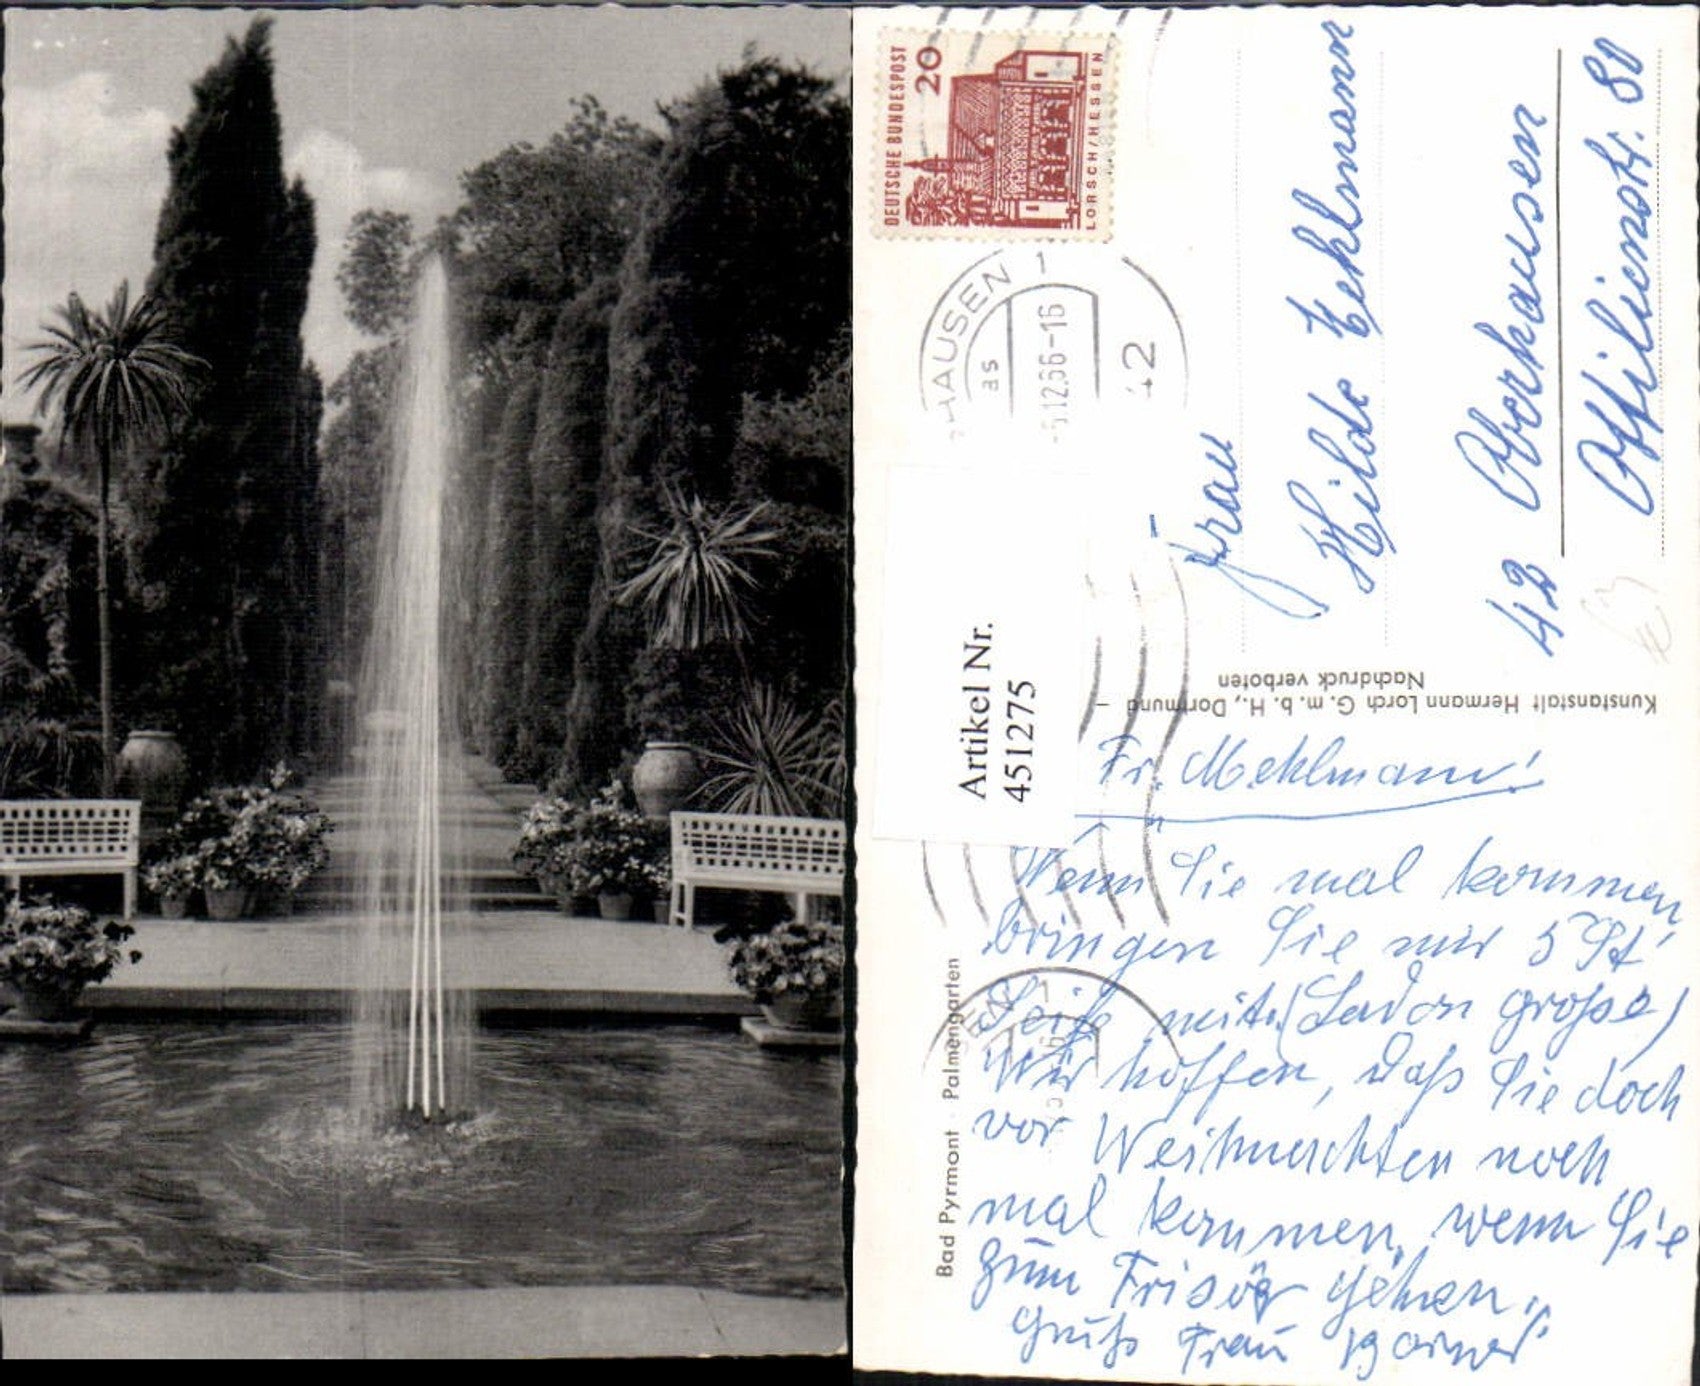 DEUTSCHE BUNDESPOST
20
LORSCH/HESSEN
HAUSEN 1
as
12.66-16
42
Artikel Nr.
4512275
Frau
Hilde
42 Oberhausen
Ottilienstr. 80
Kunstanstalt Hermann Lorch G. m. b. H., Dortmund
Nachdruck verboten
Bad Pyrmont · Palmengarten
Fr. Meklmann!
Wenn Sie mal kommen
bringen Sie mir 5 St
Seife mit. (Lavor große)
Wir hoffen, daß Sie doch
vor Weihnachten noch
mal kommen, wenn Sie
zum Frisör gehen.
Gruß Frau